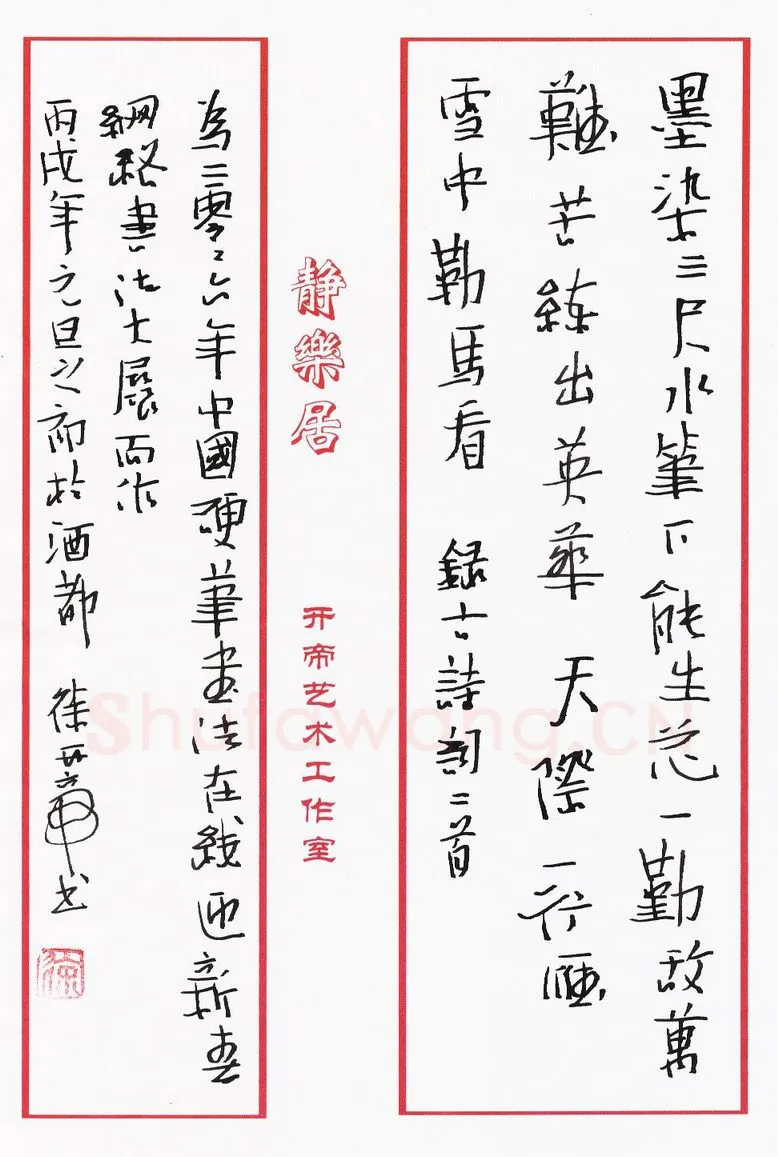 墨染三尺水筆下能生花一勤敌萬
難苦練出英華 天際一行雁
雪中勒馬看 録古詩詞二首
静樂居
开帝艺术工作室
為二零零六年中國硬筆書法在綫迎新春
網絡書法大展而作
丙戌年元旦之前於酒都 徐开帝书
Shufawang.CN